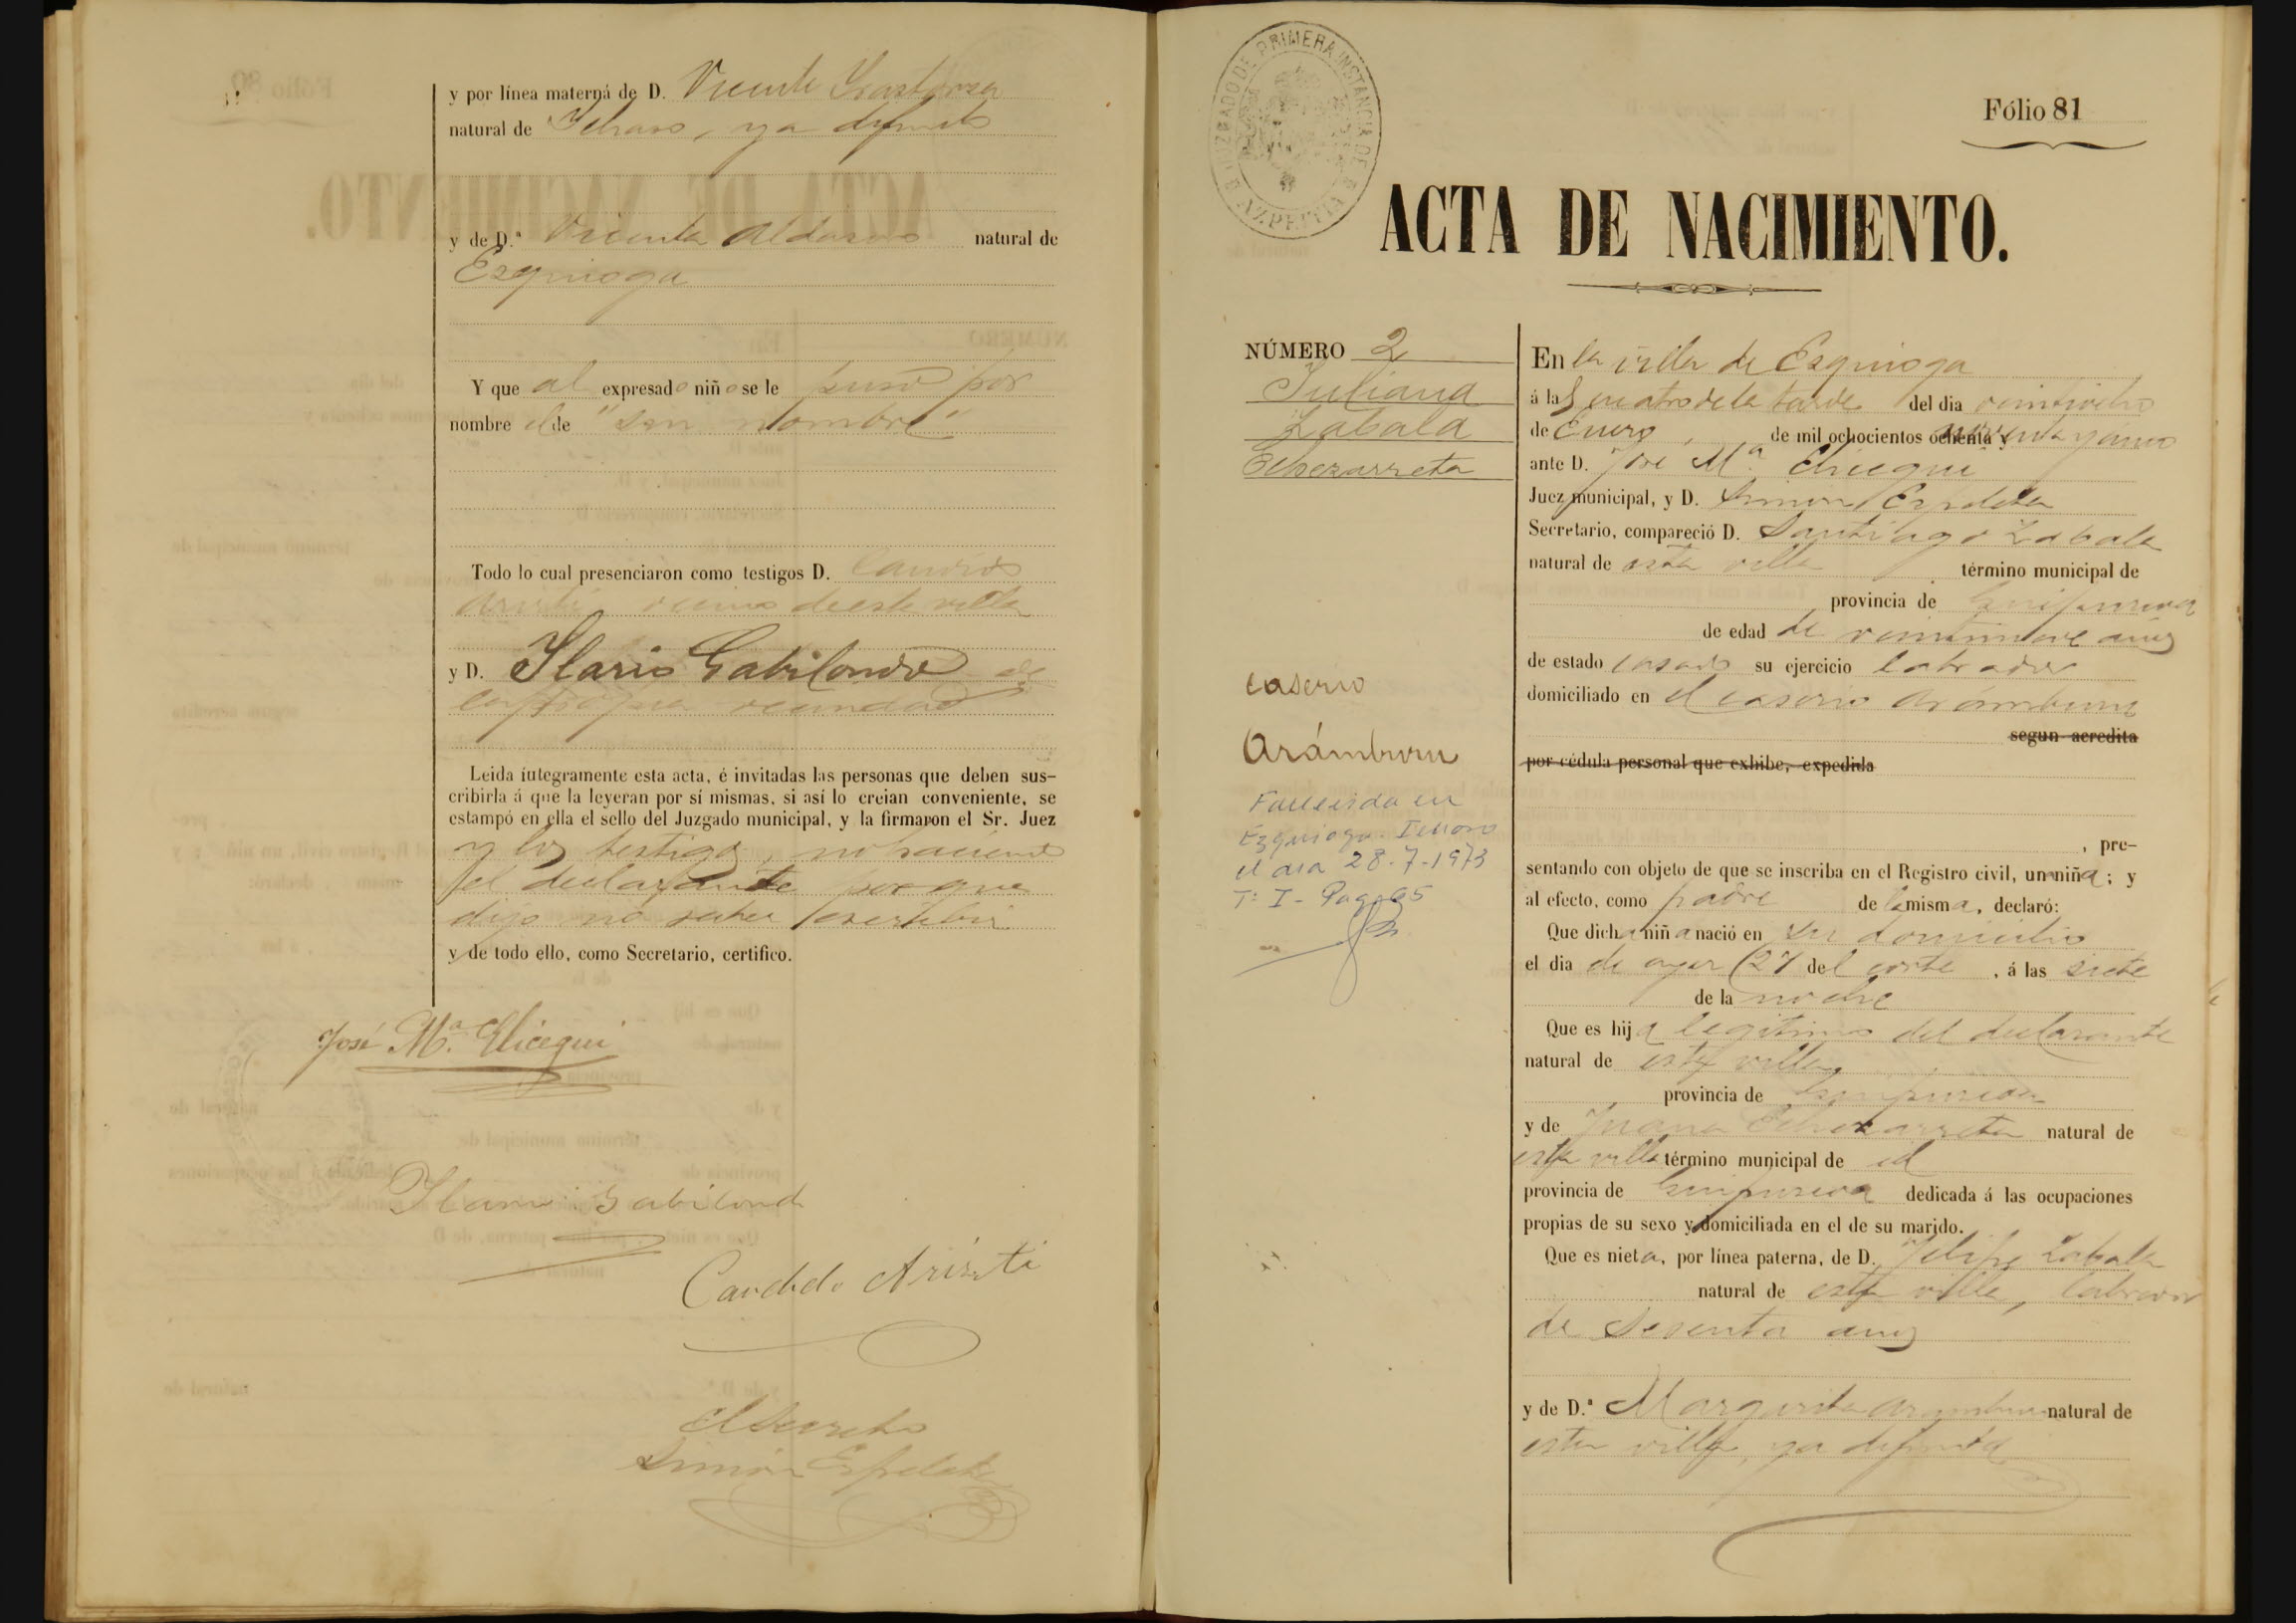 y por línea materna de D. Vicente Irastorza
natural de Ichaso, ya difunto
y de D.ª Vicenta Aldasoro natural de
Ezquioga
Y que al expresado niño se le puso por
nombre el de "sin nombre"
Todo lo cual presenciaron como testigos D. Candido
Aristi vecino de esta villa
y D. Ilario Gabilondo de
la propia vecindad
Leida íutegramente esta acta, é invitadas las personas que deben sus-
cribirla á que la leyeran por sí mismas, si así lo creian conveniente, se
estampó en ella el sello del Juzgado municipal, y la firmaron el Sr. Juez
y los testigos, no haciendo
el declarante por que
dijo no saber escribir
y de todo ello, como Secretario, certifico.
José M.ª Elicegui
Ilario Gabilondo
Candido Aristi
El Secreto
Simón Ezpeleta
JUZGADO DE PRIMERA INSTANCIA DE
AZPEITIA
Fólio 81
ACTA DE NACIMIENTO.
NÚMERO 2
Juliana
Zabala
Echezarreta
caserio
Arámburu
Fallecida en
Ezquioga-Ichaso
el dia 28-7-1973
Tº I- Pag 65
En la villa de Ezquioga
á las cuatro de la tarde del dia veintiocho
de Enero, de mil ochocientos ochenta y noventa y cinco
ante D. José M.ª Elicegui
Juez municipal, y D. Simon Ezpeleta
Secretario, compareció D. Santiago Zabala
natural de esta villa término municipal de
provincia de Guipuzcoa
de edad de veintinueve años
de estado casado su ejercicio labrador
domiciliado en el caserio Arámburu
segun acredita
por cédula personal que exhibe, expedida
, pre-
sentando con objeto de que se inscriba en el Registro civil, un niña; y
al efecto, como padre de la misma, declaró:
Que dicha niña nació en su domicilio
el dia de ayer (27 del corte , á las siete
de la noche
Que es hija legitima del declarante
natural de esta villa
provincia de Guipuzcoa
y de Juana Echezarreta natural de
esta villa término municipal de id
provincia de Guipuzcoa dedicada á las ocupaciones
propias de su sexo y domiciliada en el de su marido.
Que es nieta, por línea paterna, de D. Felipe Zabala
natural de esta villa, labrador
de sesenta años
y de D.ª Margarita Aramburu natural de
esta villa, ya difunta